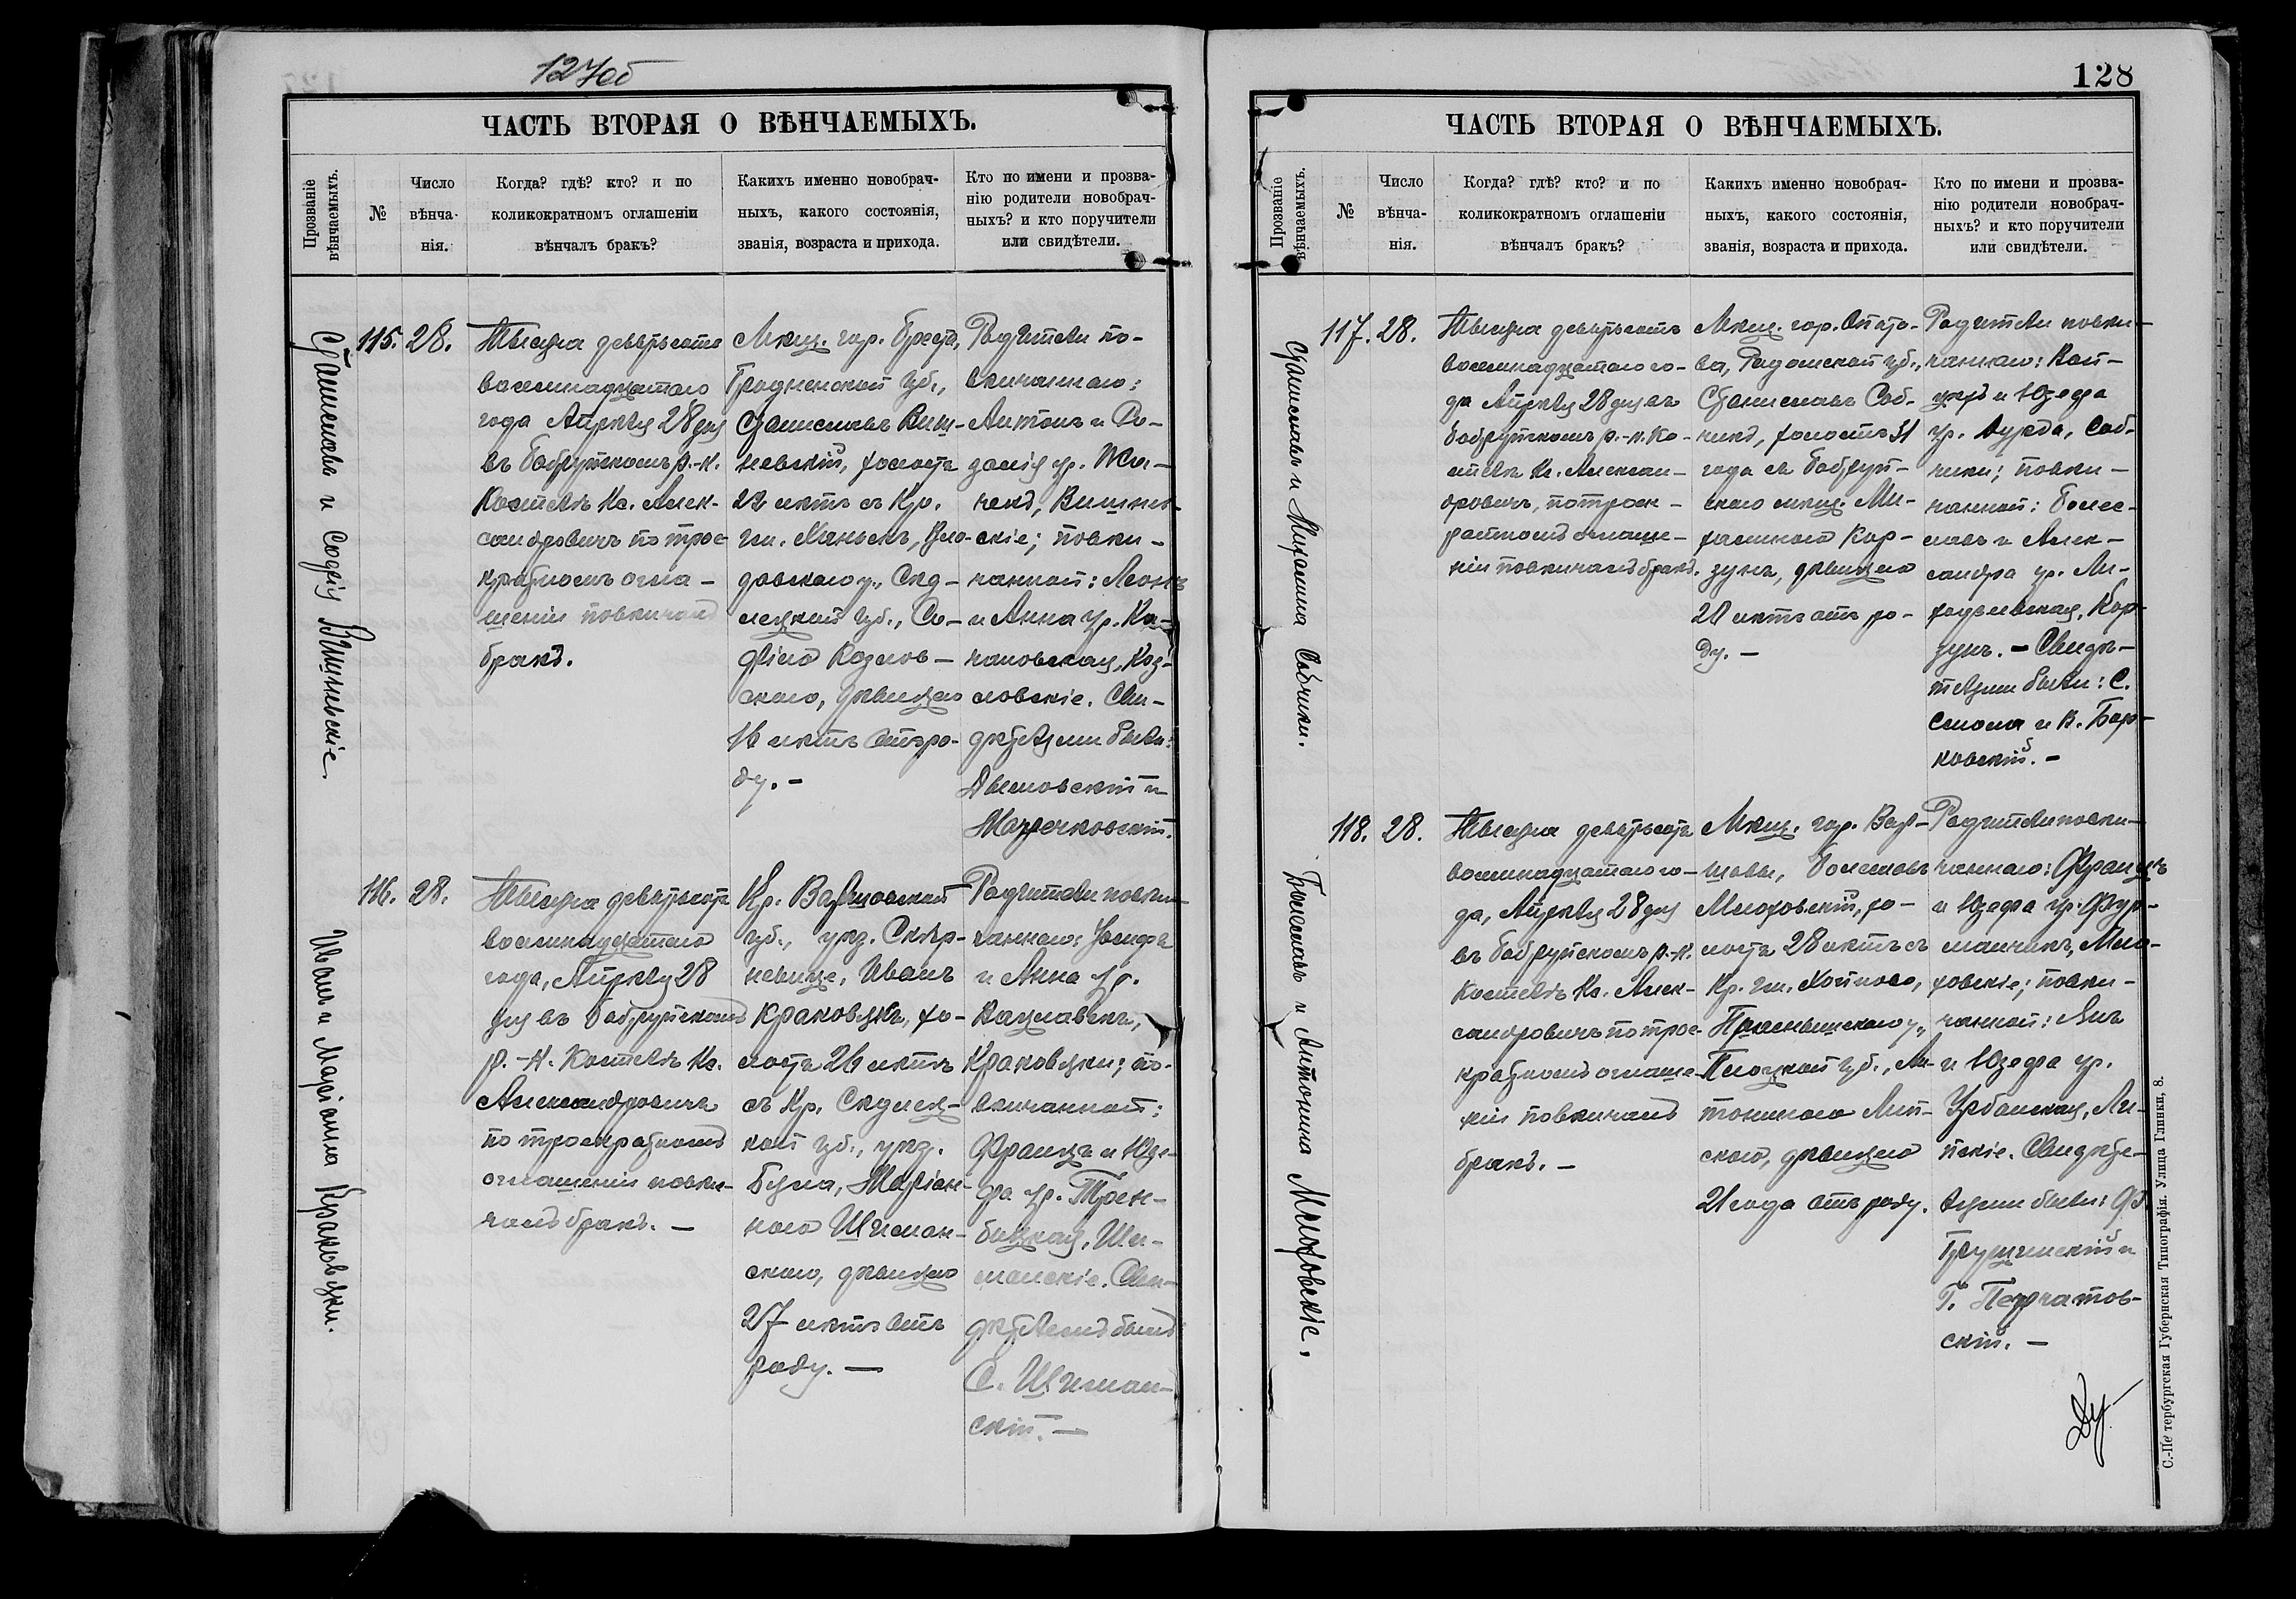 127об
ЧАСТЬ ВТОРАЯ О ВѢНЧАЕМЫХЪ.
Прозваніе
вѣнчаемыхъ.
№
Число
вѣнча-
нія.
Когда? гдѣ? кто? и по
коликократномъ оглашеніи
вѣнчалъ бракъ?
Какихъ именно новобрач-
ныхъ, какого состоянія,
званія, возраста и прихода.
Кто по имени и прозва-
нію родители новобрач-
ныхъ? и кто поручители
или свидѣтели.
Станиславъ и Софія Вишневскіе.
115. 28.
Тысяча девятьсотъ
восемнадцатаго
года Апрѣля 28 дня
въ Бобруйскомъ р.-к.
Костелѣ Кс. Алек-
сандровичъ по трое-
кратномъ огла-
шеніи повѣнчалъ
бракъ.
Мѣщ. гор. Бреста,
Гродненской губ.,
Станиславъ Виш-
невскій, холостъ
22 лѣтъ съ Кр.
гм. Ханьскъ, Вло-
давскаго у., Сѣд-
лецкой губ., Со-
фіею Козлов-
скою, дѣвицею
16 лѣтъ отъ ро-
ду. -
Родители по-
вѣнчаннаго:
Антонъ и Ро-
залія ур.
Вишнев-
скіе; повѣн-
чанной: Леонъ
и Анна ур. Ка-
чановская, Коз-
ловскіе. Сви-
дѣтелями были:
Дымовскій и
116. 28.
Иванъ и Маріанна Краковецки.
Тысяча девятьсотъ
восемнадцатаго
года, Апрѣля 28
дня въ Бобруйскомъ
р.-к. Костелѣ Кс.
Александровичъ
по троекратномъ
оглашеніи повѣн-
чалъ бракъ. -
Кр. Варшавской
губ., уѣз. Скѣр-
невице, Иванъ
Краковецкъ, хо-
лостъ 26 лѣтъ
съ Кр. Сѣдлец-
кой губ., уѣз.
Бѣла, Маріан-
ною Шиман-
скою, дѣвицею
27 лѣтъ отъ
роду. -
Родители повѣн-
чаннаго: Іосифъ
и Анна ур.
Вацлавекъ,
Краковецки; по-
вѣнчанной:
Францъ и Юзе-
фа ур. Трем-
бицкая, Ши-
манскіе. Сви-
дѣтелемъ былъ
С. Шиман-
скій. -
128
ЧАСТЬ ВТОРАЯ О ВѢНЧАЕМЫХЪ.
Прозваніе
вѣнчаемыхъ.
№
Число
вѣнча-
нія.
Когда? гдѣ? кто? и по
коликократномъ оглашеніи
вѣнчалъ бракъ?
Какихъ именно новобрач-
ныхъ, какого состоянія,
званія, возраста и прихода.
Кто по имени и прозва-
нію родители новобрач-
ныхъ? и кто поручители
или свидѣтели.
Станиславъ и Михалина Собчики.
117. 28.
Тысяча девятьсотъ
восемнадцатаго го-
да Апрѣля 28 дня въ
Бобруйскомъ р.-к. Ко-
стелѣ Кс. Алексан-
дровичъ, по троек-
ратномъ оглаше-
ніи повѣнчалъ бракъ.
Мѣщ. гор. Опато-
ва, Радомской губ.,
Станиславъ Соб-
чикъ, холостъ 31
года съ Бобруй-
скою мѣщ. Ми-
халиною Кор-
зунъ, дѣвицею
20 лѣтъ отъ ро-
ду. -
Родители повѣн-
чаннаго: Вой-
цехъ и Юзефа
ур. Дурда, Соб-
чики; повѣн-
чанной: Болес-
лавъ и Алек-
сандра ур.
Кор-
зунъ. - Свидѣ-
телями были: С.
Смола и В. Бор-
ковскій. -
118. 28.
Болеславъ и Антонина Млоховскіе.
Тысяча девятьсотъ
восемнадцатаго го-
да, Апрѣля 28 дня
въ Бобруйскомъ р.-к.
Костелѣ Кс. Алек-
сандровичъ по трое-
кратномъ оглаше-
ніи повѣнчалъ
бракъ. -
Мѣщ. гор. Вар-
шавы, Болеславъ
Млоховскій, хо-
лостъ 28 лѣтъ съ
Кр. гм. Хойново,
Праснышскаго у.,
Плоцкой губ., Ан-
тониною Лип-
скою, дѣвицею
21 года отъ роду.
Родители повѣн-
чаннаго: Францъ
и Юзефа ур. Фур-
манчикъ, Мло-
ховскіе; повѣн-
чанной: Янъ
и Юзефа ур.
Урбанская, Ли-
пскіе. Свидѣте-
лями были: Ф.
Грущинскій и
Г. Перчатов-
скій. -
С.-Петербургская Губернская Типографія. Улица Глинки, 8.